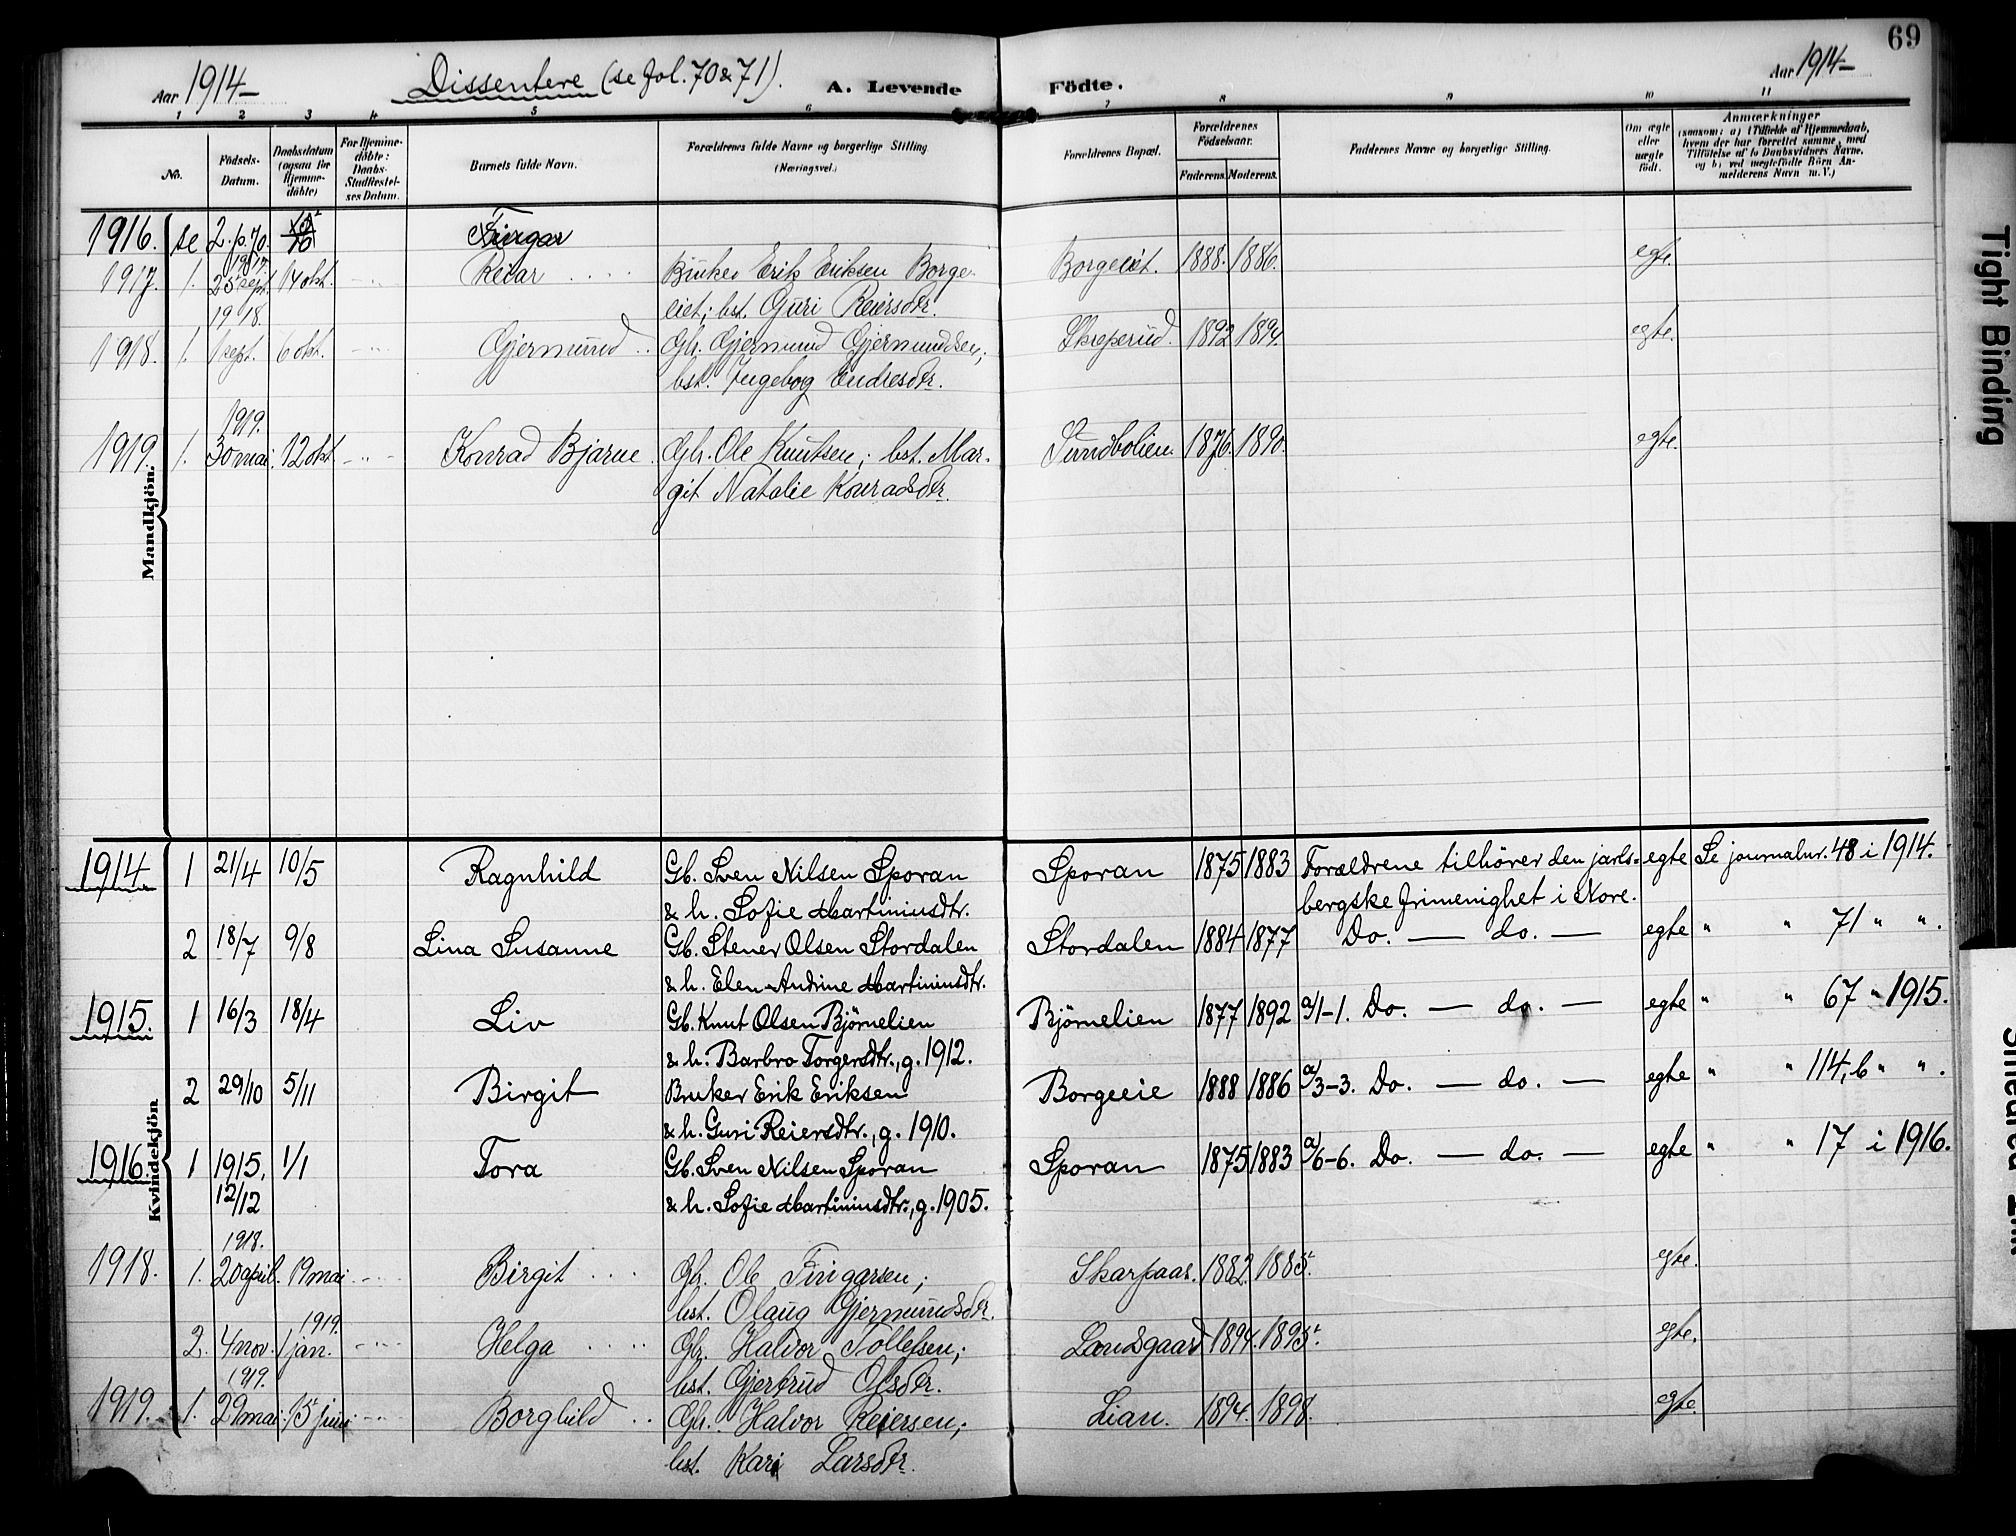 69
Aar 1914- Dissentere (se fol. 70 & 71). A. Levende Födte. Aar 1914-
1 2 3 4 5 6 7 8 9 10 11
No. Födsels-Datum. Daabsdatum (ogsaa for Hjemme-döbte) For Hjemme-döbte: Daabs-Stadfæstel-ses Datum. Barnets fulde Navn. Forældrenes fulde Navne og borgerlige Stilling (Næringsvei.) Forældrenes Bopæl. Forældrenes Födselsaar. Faderens. Moderens. Faddernes Navne og borgerlige Stilling. Om ægte eller uægte födt. Anmærkninger (saasom: a) i Tilfælde af Hjemmedaab, hvem der har forrettet samme, med Tilföielse af to Daabsvidners Navne, og b) ved uægtefödte Börn An-melderens Navn m. V.)
Mandkjön.
1916. se 2. p. 70. Fingar
1917
1917. 1. 25 sept. 14 okt. -"- Reiar Bruker Erik Eriksen Borge- Borgeeiet. 1888. 1886. egte.
eiet; hst. Guri Reiersdtr.
1918.
1918. 1. 1 sept. 6 okt. -"- Gjermund Gbr. Gjermund Gjermundsen; Skreperud. 1892 1894. egte.
hst. Ingebog Endresdtr.
1919.
1919. 1. 30 mai. 12 okt -"- Konrad Bjarne. Gbr. Ole Knutsen; hst. Mar- Sundbolien. 1876. 1890. egte.
git Natalie Konradsdtr.
Kvindekjön
1914 1 21/4 10/5 Ragnhild Gb. Sven Nilsen Sporan Sporan 1875 1883 Forældrene tilhører den jarls- egte Se journalnr. 48 i 1914.
& h. Sofie Martiniusdtr. bergske frimenighet i Nore.
2 18/7 9/8 Lina Susanne Gb. Stener Olsen Stordalen Stordalen 1884 1877 Do. — do. — egte " " 71 " ".
& h. Elen Andrine Martiniusdtr.
1915. 1 16/3 18/4 Liv Gb. Knut Olsen Bjørnelien Bjørnelien 1877 1892 a/1-1. Do. — do. — egte " " 67 " 1915.
& h. Barbro Torgersdtr., g. 1912.
2 29/10 5/11 Birgit Bruker Erik Eriksen Borgeeie 1888 1886 a/3-3. Do. — do. — egte " " 114, b " ".
& h. Guri Reiersdtr., g. 1910.
1916 1 1915, 1/1 Tora Gb. Sven Nilsen Sporan Sporan 1875 1883 a/6-6. Do. — do. — egte " " 17 i 1916.
12/12 & h. Sofie Martiniusdtr., g. 1905.
1918.
1918. 1. 20 april. 19 mai -"- Birgit Gbr. Ole Fingarsen; Skarpaas. 1882. 1885. egte.
hst. Olaug Gjermundsdtr.
1919.
2. 4 nov. 1 jan. -"- Helga Gbr. Halvor Tollefsen; Landsgaard 1894. 1895. egte.
1919. hst. Gjertrud Olsdtr.
1919. 1. 29 mai. 15 juni -"- Borghild Gbr. Halvor Reiersen; Lian. 1894. 1898. egte.
hst. Kari Larsdtr.
Tight Binding